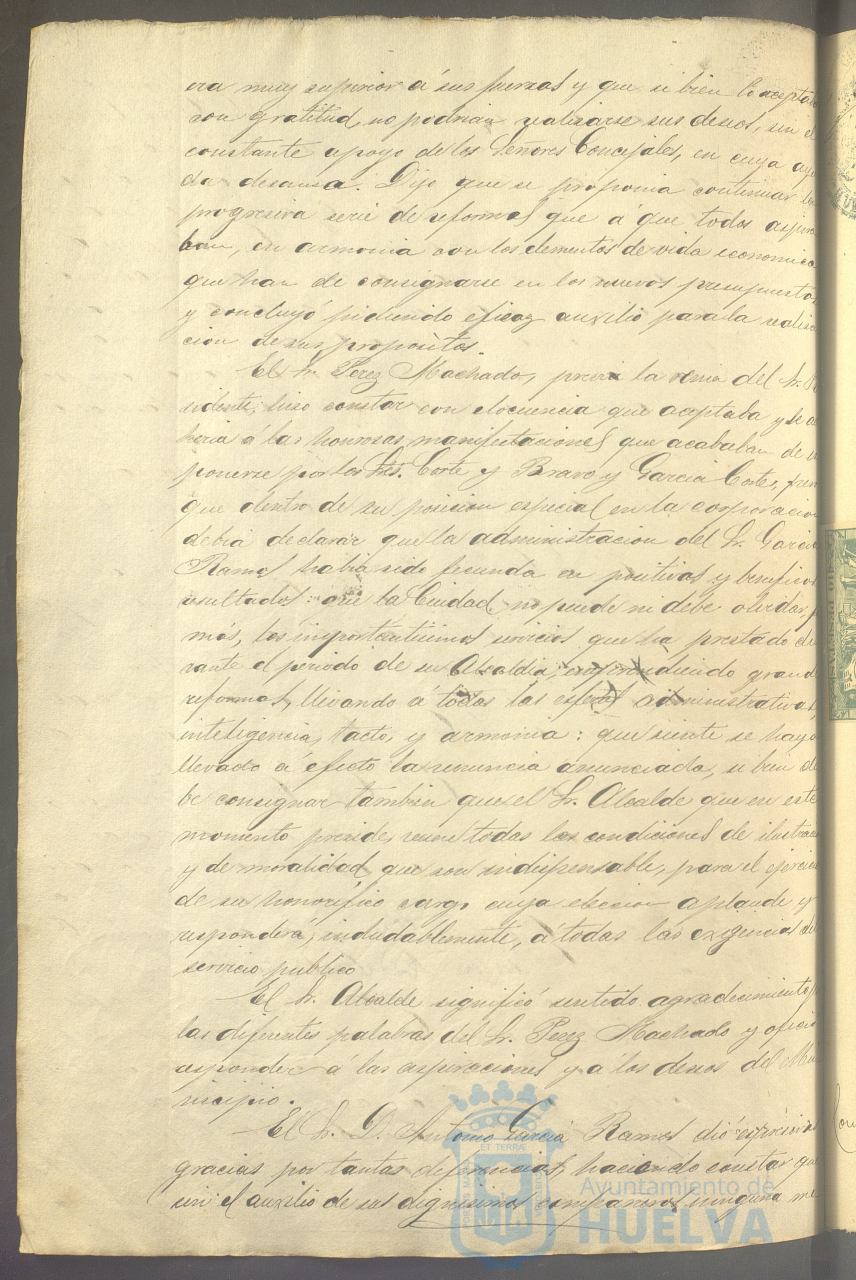 era muy superior á sus fuerzas y que si bien lo acepta
con gratitud, no podrian realizarse sus deseos, sin el
constante apoyo de los Señores Concejales, en cuya ayu
da descansa. Dijo que se proponia continuar la
progresiva serie de reformas que á que todos aspira
ban, en armonia con los elementos de vida economica
que han de consignarse en los nuevos presupuestos
y concluyó pidiendo eficaz auxilio para la realiza
cion de sus propositos.
El Sr. Perez Machado, previa la venia del Sr. Pre
sidente, hizo constar con elocuencia que aceptaba y se ad
heria á las honrosas manifestaciones que acababan de ex
ponerse por los Sres. Corte y Bravo y Garcia Cortes,
que dentro de su posicion especial en la corporacion
debia declarar que la administracion del Sr. Garcia
Ramos habia sido fecunda en positivos y beneficos
resultados: que la Ciudad no puede ni debe olvidar ja
más, los importantisimos servicios que ha prestado du
rante el periodo de su Alcaldia, emprendiendo grandes
reformas, llevando á todas las esferas administrativas,
inteligencia, tacto, y armonia: que siente se haya
llevado á efecto la renuncia anunciada, si bien de
be consignar tambien que el Sr. Alcalde que en este
momento preside, reune todas las condiciones de ilustracion
y de moralidad que son indispensable, para el ejercicio
de su honorifico cargo, cuya eleccion aplaude y
responderá, indudablemente, á todas las exigencias del
servicio publico
El Sr. Alcalde significó sentido agradecimiento á
las diferentes palabras del Sr. Perez Machado y ofreció
responder á las aspiraciones y á los deseos del Mu
nicipio.
El Sr. D. Antonio Garcia Ramos dió espresivas
gracias por tantas deferencias, haciendo constar que
sin el auxilio de sus dignisimos compañeros, ninguna me
Ayuntamiento de
HUELVA